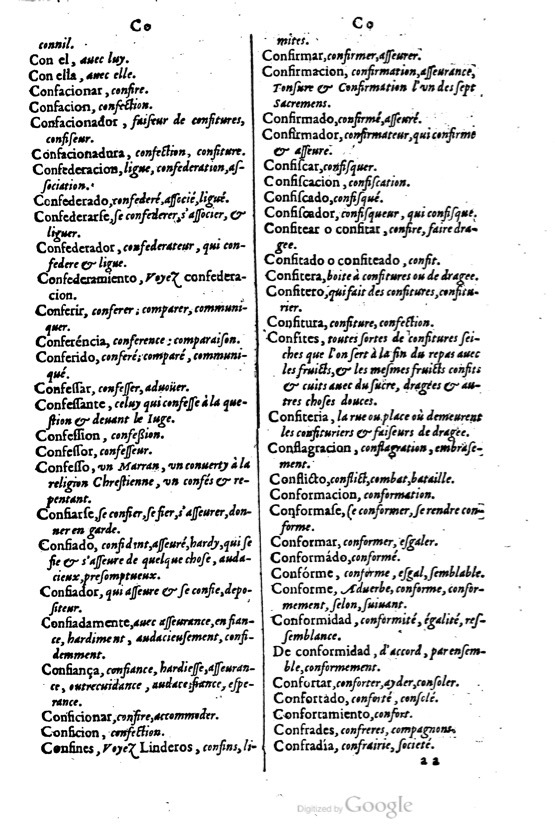 Co
connil.
Con el, auec luy.
Con ella, auec elle.
Confacionar, confire.
Confacion, confection.
Confacionador, faiseur de confitures,
confiseur.
Confacionadura, confection, confiture.
Confederacion, ligue, confederation, as-
sociation.
Confederado, confederé, associé, ligué.
Confederarse, se confederer, s'associer, &
liguer.
Confederador, confederateur, qui con-
federe & ligue.
Confederamiento, Voyez confedera-
cion.
Conferir, conferer; comparer, communi-
quer.
Conferéncia, conference: comparaison.
Conferido, conferé; comparé, communi-
qué.
Confessar, confesser, aduoüer.
Confessante, celuy qui confesse à la que-
stion & deuant le Iuge.
Confession, confession.
Confessor, confesseur.
Confesso, vn Marran, vn conuerty à la
religion Chrestienne, vn confés & re-
pentant.
Confiarse, se confier, se fier, s'asseurer, don-
ner en garde.
Confiado, confident, asseuré, hardy, qui se
fie & s'asseure de quelque chose, auda-
cieux, presomptueux.
Confiador, qui asseure & se confie, depo-
siteur.
Confiadamente, auec asseurance, en fian-
ce, hardiment, audacieusement, confi-
demment.
Confiança, confiance, hardiesse, asseuran-
ce, outrecuidance, audace, fiance, espe-
rance.
Conficionar, confire, accommoder.
Conficion, confection.
Confines, Voyez Linderos, confins, li-
Co
mites.
Confirmar, confirmer, asseurer.
Confirmacion, confirmation, asseurance,
Tonsure & Confirmation l'vn des sept
Sacremens.
Confirmado, confirmé, asseuré.
Confirmador, confirmateur, qui confirme
& asseure.
Confiscar, confisquer.
Confiscacion, confiscation.
Confiscado, confisqué.
Confiscador, confisqueur, qui confisque.
Confitear o confitar, confire, faire dra-
gee.
Confitado o confiteado, confit.
Confitera, boite à confitures ou de dragee.
Confitero, qui fait des confitures, confitu-
rier.
Confitura, confiture, confection.
Confites, toutes sortes de confitures sei-
ches que l'on sert à la fin du repas auec
les fruicts, & les mesmes fruicts confits
& cuits auec du sucre, dragées & au-
tres choses douces.
Confiteria, la rue ou place où demeurent
les confituriers & faiseurs de dragée.
Conflagracion, conflagration, embrase-
ment.
Conflicto, conflict, combat, bataille.
Conformacion, conformation.
Conformase, se conformer, se rendre con-
forme.
Conformar, conformer, esgaler.
Conformádo, conformé.
Confórme, conforme, esgal, semblable.
Conforme, Aduerbe, conforme, confor-
mement, selon, suiuant.
Conformidad, conformité, égalité, res-
semblance.
De conformidad, d'accord, par ensem-
ble, conformement.
Confortar, conforter, ayder, consoler.
Confortádo, conforté, consolé.
Confortamiento, confort.
Confrades, confreres, compagnons.
Confradía, confrairie, societé.
aa
Digitized by Google